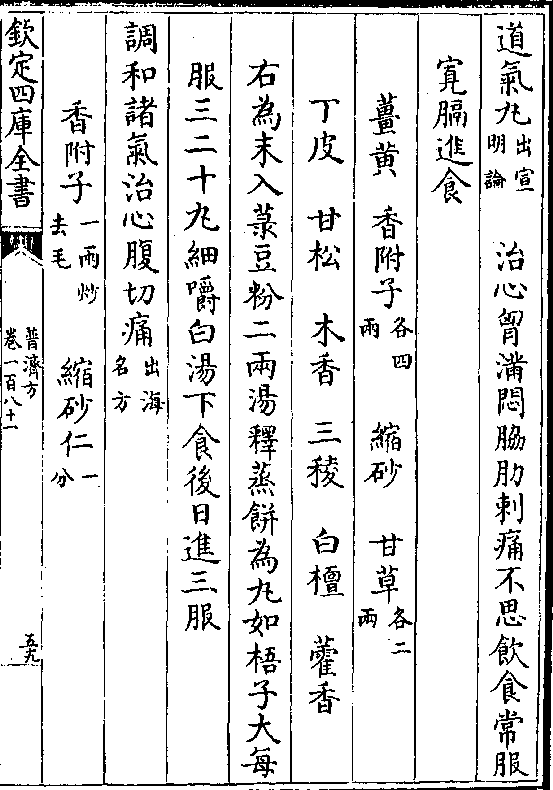 道氣丸出宣明論　治心胷滿悶脇肋刺痛不思飲食常服
寛膈進食
薑黄　香附子各四兩　縮砂　甘草各二兩
丁皮　甘松　木香　三稜　白檀　藿香
右為末入菉豆粉二兩湯釋蒸餅為丸如梧子大每
服三二十丸細嚼白湯下食後日進三服
調和諸氣治心腹切痛出海名方
香附子一兩炒去毛　縮砂仁一分
欽定四庫全書　普濟方卷一百八十一　五九